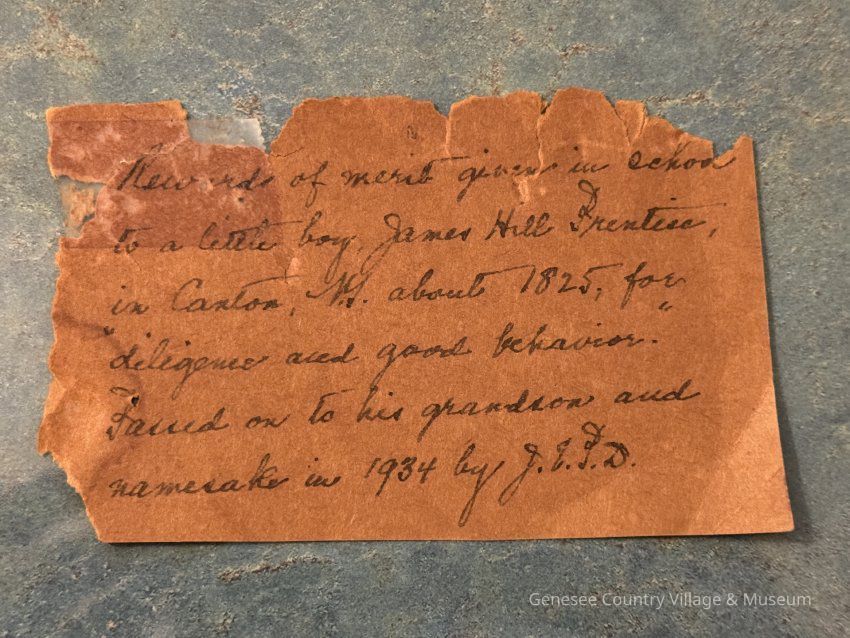 Rewards of merit given in school
to a little boy, James Hill Prentise,
in Canton, about 1825, for
"diligence and good behavior."
Passed on to his grandson and
namesake in 1934 by J.E.P.D.
Genesee Country Village & Museum